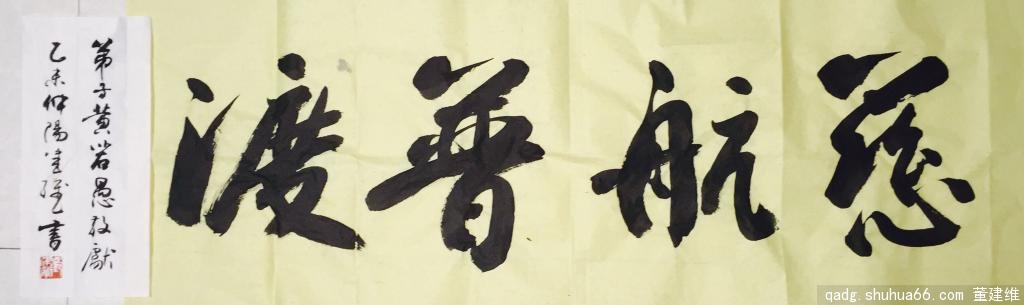 慈航普渡
弟子黄若愚敬獻
乙未仲陽建維書
qadg.shuhua66.com 董建维